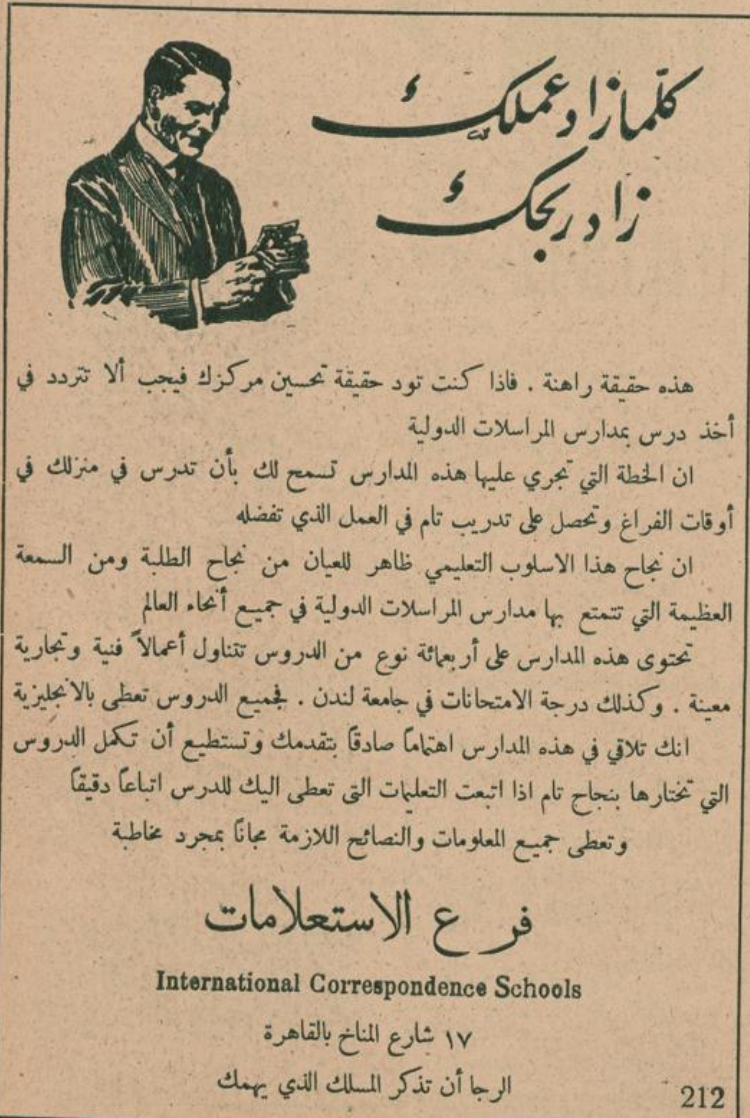 كلّما زاد عملك
زاد ربحك
هذه حقيقة راهنة . فاذا كنت تود حقيقة تحسين مركزك فيجب ألا تتردد في
أخذ درس بمدارس المراسلات الدولية
ان الخطة التي تجري عليها هذه المدارس تسمح لك بأن تدرس في منزلك في
أوقات الفراغ وتحصل على تدريب تام في العمل الذي تفضله
ان نجاح هذا الاسلوب التعليمي ظاهر للعيان من نجاح الطلبة ومن السمعة
العظيمة التي تتمتع بها مدارس المراسلات الدولية في جميع أنحاء العالم
تحتوى هذه المدارس على أربعمائة نوع من الدروس تتناول أعمالاً فنية وتجارية
معينة . وكذلك درجة الامتحانات في جامعة لندن . فجميع الدروس تعطى بالانجليزية
انك تلاقي في هذه المدارس اهتماماً صادقاً بتقدمك وتستطيع أن تكمل الدروس
التي تختارها بنجاح تام اذا اتبعت التعليمات التى تعطى اليك للدرس اتباعاً دقيقاً
وتعطى جميع المعلومات والنصائح اللازمة مجاناً بمجرد مخاطبة
فرع الاستعلامات
International Correspondence Schools
١٧ شارع المناخ بالقاهرة
الرجا أن تذكر المسلك الذي يهمك
212